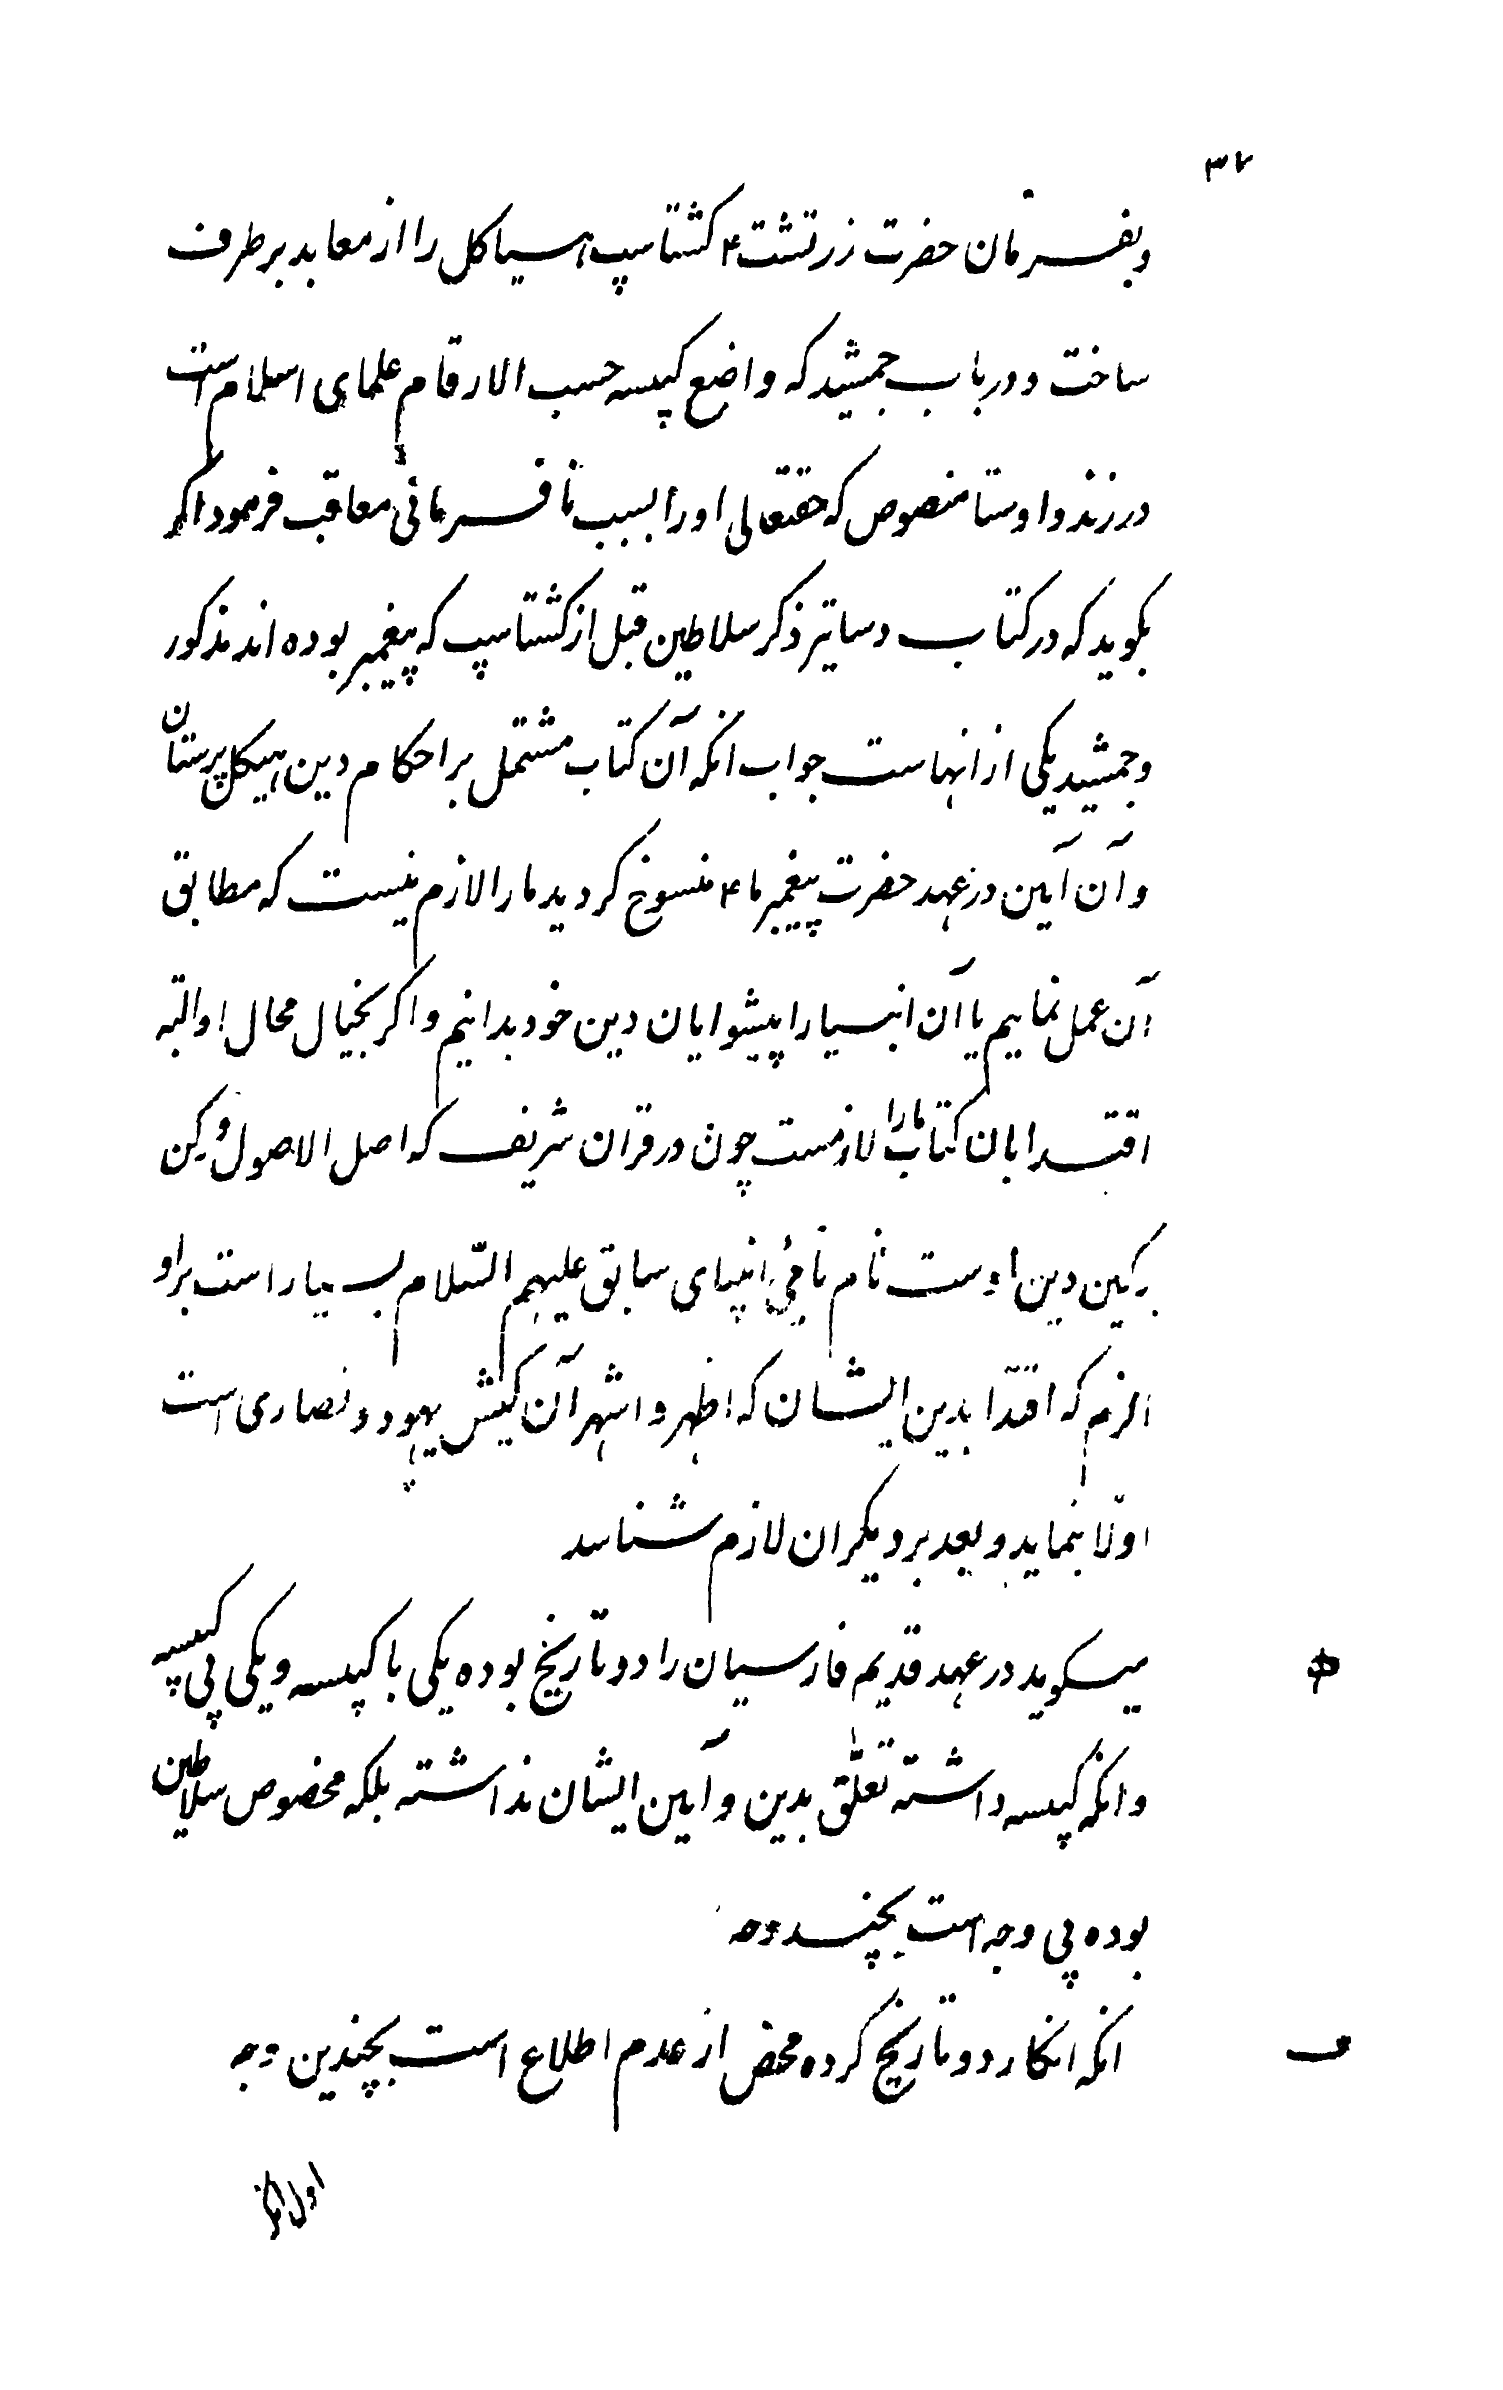 ۳۷
وبفرمان حضرت زرتشت ۴ کشتاسپ هیاکل را از معابد برطرف
ساخت و درباب جمشید که واضع کبیسه حسب الارقام علمای اسلام است
در زند و اوستا منصوص که حقتعالی او را بسبب نافرمانی معاقب فرمود اکر
بکوید که در کتاب دساتیر ذکر سلاطین قبل از کشتاسپ که پیغمبر بوده اند مذکور
و جمشید یکی از انهاست جواب انکه آن کتاب مشتمل بر احکام دین هیکل پرستان
و آن آیین در عهد حضرت پیغمبر ما ۴ منسوخ کردید ما را لازم نیست که مطابق
آن عمل نماییم یا آن انبیا را پیشوایان دین خود بدانیم و اکر بخیال محال او البته
اقتدا بان کتاب ما را لازمست چون در قران شریف که اصل الاصول و رکن
رکین دین اوست نام نامیٔ انبیای سابق علیهم السّلام بسیار است بر او
الزم که اقتدا بدین ایشان که اظهر و اشهر آن کیش یهود و نصاری است
اولّا بنماید و بعد بر دیکران لازم شناسد
میکوید در عهد قدیم فارسیان را دو تاریخ بوده یکی با کبیسه و یکی بی کبیسه
و انکه کبیسه داشته تعلّق بدین و آیین ایشان نداشته بلکه مخصوص سلاطین
بوده بی وجه است بچند وجه
انکه انکار دو تاریخ کرده محض از عدم اطلاع است بچندین وجه
اول انکه